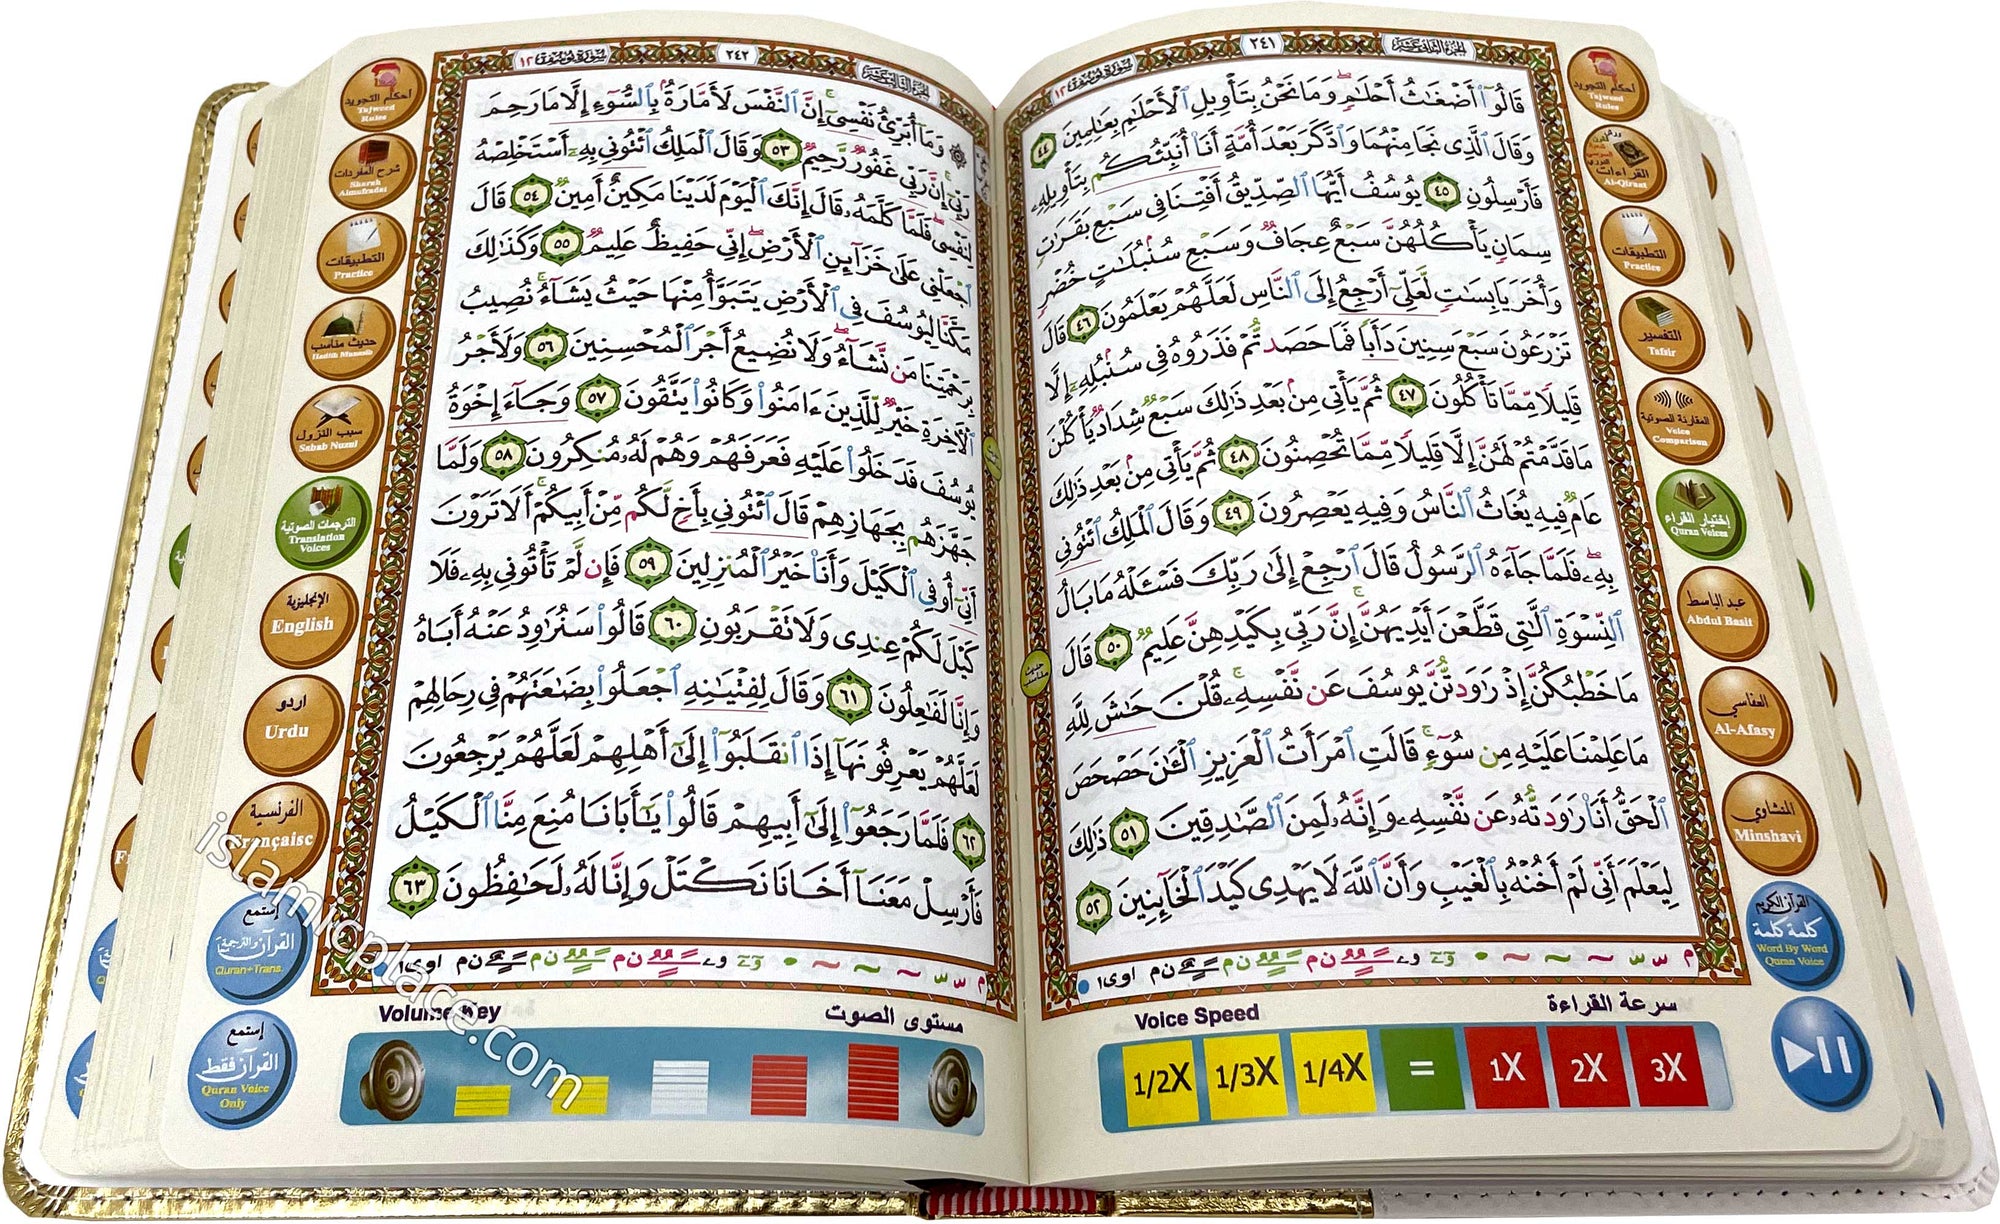 الجزء الثاني عشر
٢٤١
سورة يوسف ١٢
قَالُوٓا۟ أَضْغَٰثُ أَحْلَٰمٍ وَمَا نَحْنُ بِتَأْوِيلِ ٱلْأَحْلَٰمِ بِعَٰلِمِينَ ٤٤
وَقَالَ ٱلَّذِى نَجَا مِنْهُمَا وَٱدَّكَرَ بَعْدَ أُمَّةٍ أَنَا۠ أُنَبِّئُكُم بِتَأْوِيلِهِۦ
فَأَرْسِلُونِ ٤٥ يُوسُفُ أَيُّهَا ٱلصِّدِّيقُ أَفْتِنَا فِى سَبْعِ بَقَرَٰتٍ
سِمَانٍ يَأْكُلُهُنَّ سَبْعٌ عِجَافٌ وَسَبْعِ سُنۢبُلَٰتٍ خُضْرٍ
وَأُخَرَ يَابِسَٰتٍ لَّعَلِّىٓ أَرْجِعُ إِلَى ٱلنَّاسِ لَعَلَّهُمْ يَعْلَمُونَ ٤٦ قَالَ
تَزْرَعُونَ سَبْعَ سِنِينَ دَأَبًا فَمَا حَصَدتُّمْ فَذَرُوهُ فِى سُنۢبُلِهِۦٓ إِلَّا
قَلِيلًا مِّمَّا تَأْكُلُونَ ٤٧ ثُمَّ يَأْتِى مِنۢ بَعْدِ ذَٰلِكَ سَبْعٌ شِدَادٌ يَأْكُلْنَ
مَا قَدَّمْتُمْ لَهُنَّ إِلَّا قَلِيلًا مِّمَّا تُحْصِنُونَ ٤٨ ثُمَّ يَأْتِى مِنۢ بَعْدِ ذَٰلِكَ
عَامٌ فِيهِ يُغَاثُ ٱلنَّاسُ وَفِيهِ يَعْصِرُونَ ٤٩ وَقَالَ ٱلْمَلِكُ ٱئْتُونِى
بِهِۦ فَلَمَّا جَآءَهُ ٱلرَّسُولُ قَالَ ٱرْجِعْ إِلَىٰ رَبِّكَ فَسْـَٔلْهُ مَا بَالُ
ٱلنِّسْوَةِ ٱلَّٰتِى قَطَّعْنَ أَيْدِيَهُنَّ إِنَّ رَبِّى بِكَيْدِهِنَّ عَلِيمٌ ٥٠ قَالَ
مَا خَطْبُكُنَّ إِذْ رَٰوَدتُّنَّ يُوسُفَ عَن نَّفْسِهِۦ قُلْنَ حَٰشَ لِلَّهِ
مَا عَلِمْنَا عَلَيْهِ مِن سُوٓءٍ قَالَتِ ٱمْرَأَتُ ٱلْعَزِيزِ ٱلْـَٰٔنَ حَصْحَصَ
ٱلْحَقُّ أَنَا۠ رَٰوَدتُّهُۥ عَن نَّفْسِهِۦ وَإِنَّهُۥ لَمِنَ ٱلصَّٰدِقِينَ ٥١ ذَٰلِكَ
لِيَعْلَمَ أَنِّى لَمْ أَخُنْهُ بِٱلْغَيْبِ وَأَنَّ ٱللَّهَ لَا يَهْدِى كَيْدَ ٱلْخَآئِنِينَ ٥٢
حديث مناسب
أحكام التجويد
Tajweed Rules
القراءات
Al-Qiraat
التطبيقات
Practice
التفسير
Tafsir
المقارنة الصوتية
Voice Comparison
إختيار القراء
Quran Voices
عبد الباسط
Abdul Basit
العفاسي
Al-Afasy
المنشاوي
Minshavi
القرآن الكريم
كلمة كلمة
Word By Word
Quran Voice
سرعة القراءة
Voice Speed
1/2X 1/3X 1/4X = 1X 2X 3X
الجزء الثالث عشر
٢٤٢
سورة يوسف ١٢
وَمَآ أُبَرِّئُ نَفْسِىٓ إِنَّ ٱلنَّفْسَ لَأَمَّارَةٌۢ بِٱلسُّوٓءِ إِلَّا مَا رَحِمَ
رَبِّىٓ إِنَّ رَبِّى غَفُورٌ رَّحِيمٌ ٥٣ وَقَالَ ٱلْمَلِكُ ٱئْتُونِى بِهِۦٓ أَسْتَخْلِصْهُ
لِنَفْسِى فَلَمَّا كَلَّمَهُۥ قَالَ إِنَّكَ ٱلْيَوْمَ لَدَيْنَا مَكِينٌ أَمِينٌ ٥٤ قَالَ
ٱجْعَلْنِى عَلَىٰ خَزَآئِنِ ٱلْأَرْضِ إِنِّى حَفِيظٌ عَلِيمٌ ٥٥ وَكَذَٰلِكَ
مَكَّنَّا لِيُوسُفَ فِى ٱلْأَرْضِ يَتَبَوَّأُ مِنْهَا حَيْثُ يَشَآءُ نُصِيبُ
بِرَحْمَتِنَا مَن نَّشَآءُ وَلَا نُضِيعُ أَجْرَ ٱلْمُحْسِنِينَ ٥٦ وَلَأَجْرُ
ٱلْـَٔاخِرَةِ خَيْرٌ لِّلَّذِينَ ءَامَنُوا۟ وَكَانُوا۟ يَتَّقُونَ ٥٧ وَجَآءَ إِخْوَةُ
يُوسُفَ فَدَخَلُوا۟ عَلَيْهِ فَعَرَفَهُمْ وَهُمْ لَهُۥ مُنكِرُونَ ٥٨ وَلَمَّا
جَهَّزَهُم بِجَهَازِهِمْ قَالَ ٱئْتُونِى بِأَخٍ لَّكُم مِّنْ أَبِيكُمْ أَلَا تَرَوْنَ
أَنِّىٓ أُوفِى ٱلْكَيْلَ وَأَنَا۠ خَيْرُ ٱلْمُنزِلِينَ ٥٩ فَإِن لَّمْ تَأْتُونِى بِهِۦ فَلَا
كَيْلَ لَكُمْ عِندِى وَلَا تَقْرَبُونِ ٦٠ قَالُوا۟ سَنُرَٰوِدُ عَنْهُ أَبَاهُ
وَإِنَّا لَفَٰعِلُونَ ٦١ وَقَالَ لِفِتْيَٰنِهِ ٱجْعَلُوا۟ بِضَٰعَتَهُمْ فِى رِحَالِهِمْ
لَعَلَّهُمْ يَعْرِفُونَهَآ إِذَا ٱنقَلَبُوٓا۟ إِلَىٰٓ أَهْلِهِمْ لَعَلَّهُمْ يَرْجِعُونَ
٦٢ فَلَمَّا رَجَعُوٓا۟ إِلَىٰٓ أَبِيهِمْ قَالُوا۟ يَٰٓأَبَانَا مُنِعَ مِنَّا ٱلْكَيْلُ
فَأَرْسِلْ مَعَنَآ أَخَانَا نَكْتَلْ وَإِنَّا لَهُۥ لَحَٰفِظُونَ ٦٣
أحكام التجويد
Tajweed Rules
شرح المفردات
Sharah Almufradat
التطبيقات
Practice
حديث مناسب
Hadith Munasib
سبب النزول
Sabab Nuzul
الترجمات الصوتية
Translation Voices
الإنجليزية
English
اردو
Urdu
الفرنسية
Française
إستمع
القرآن والترجمة
Quran+Trans.
إستمع
القرآن فقط
Quran Voice Only
مستوى الصوت
Volume Key
islamicplace.com